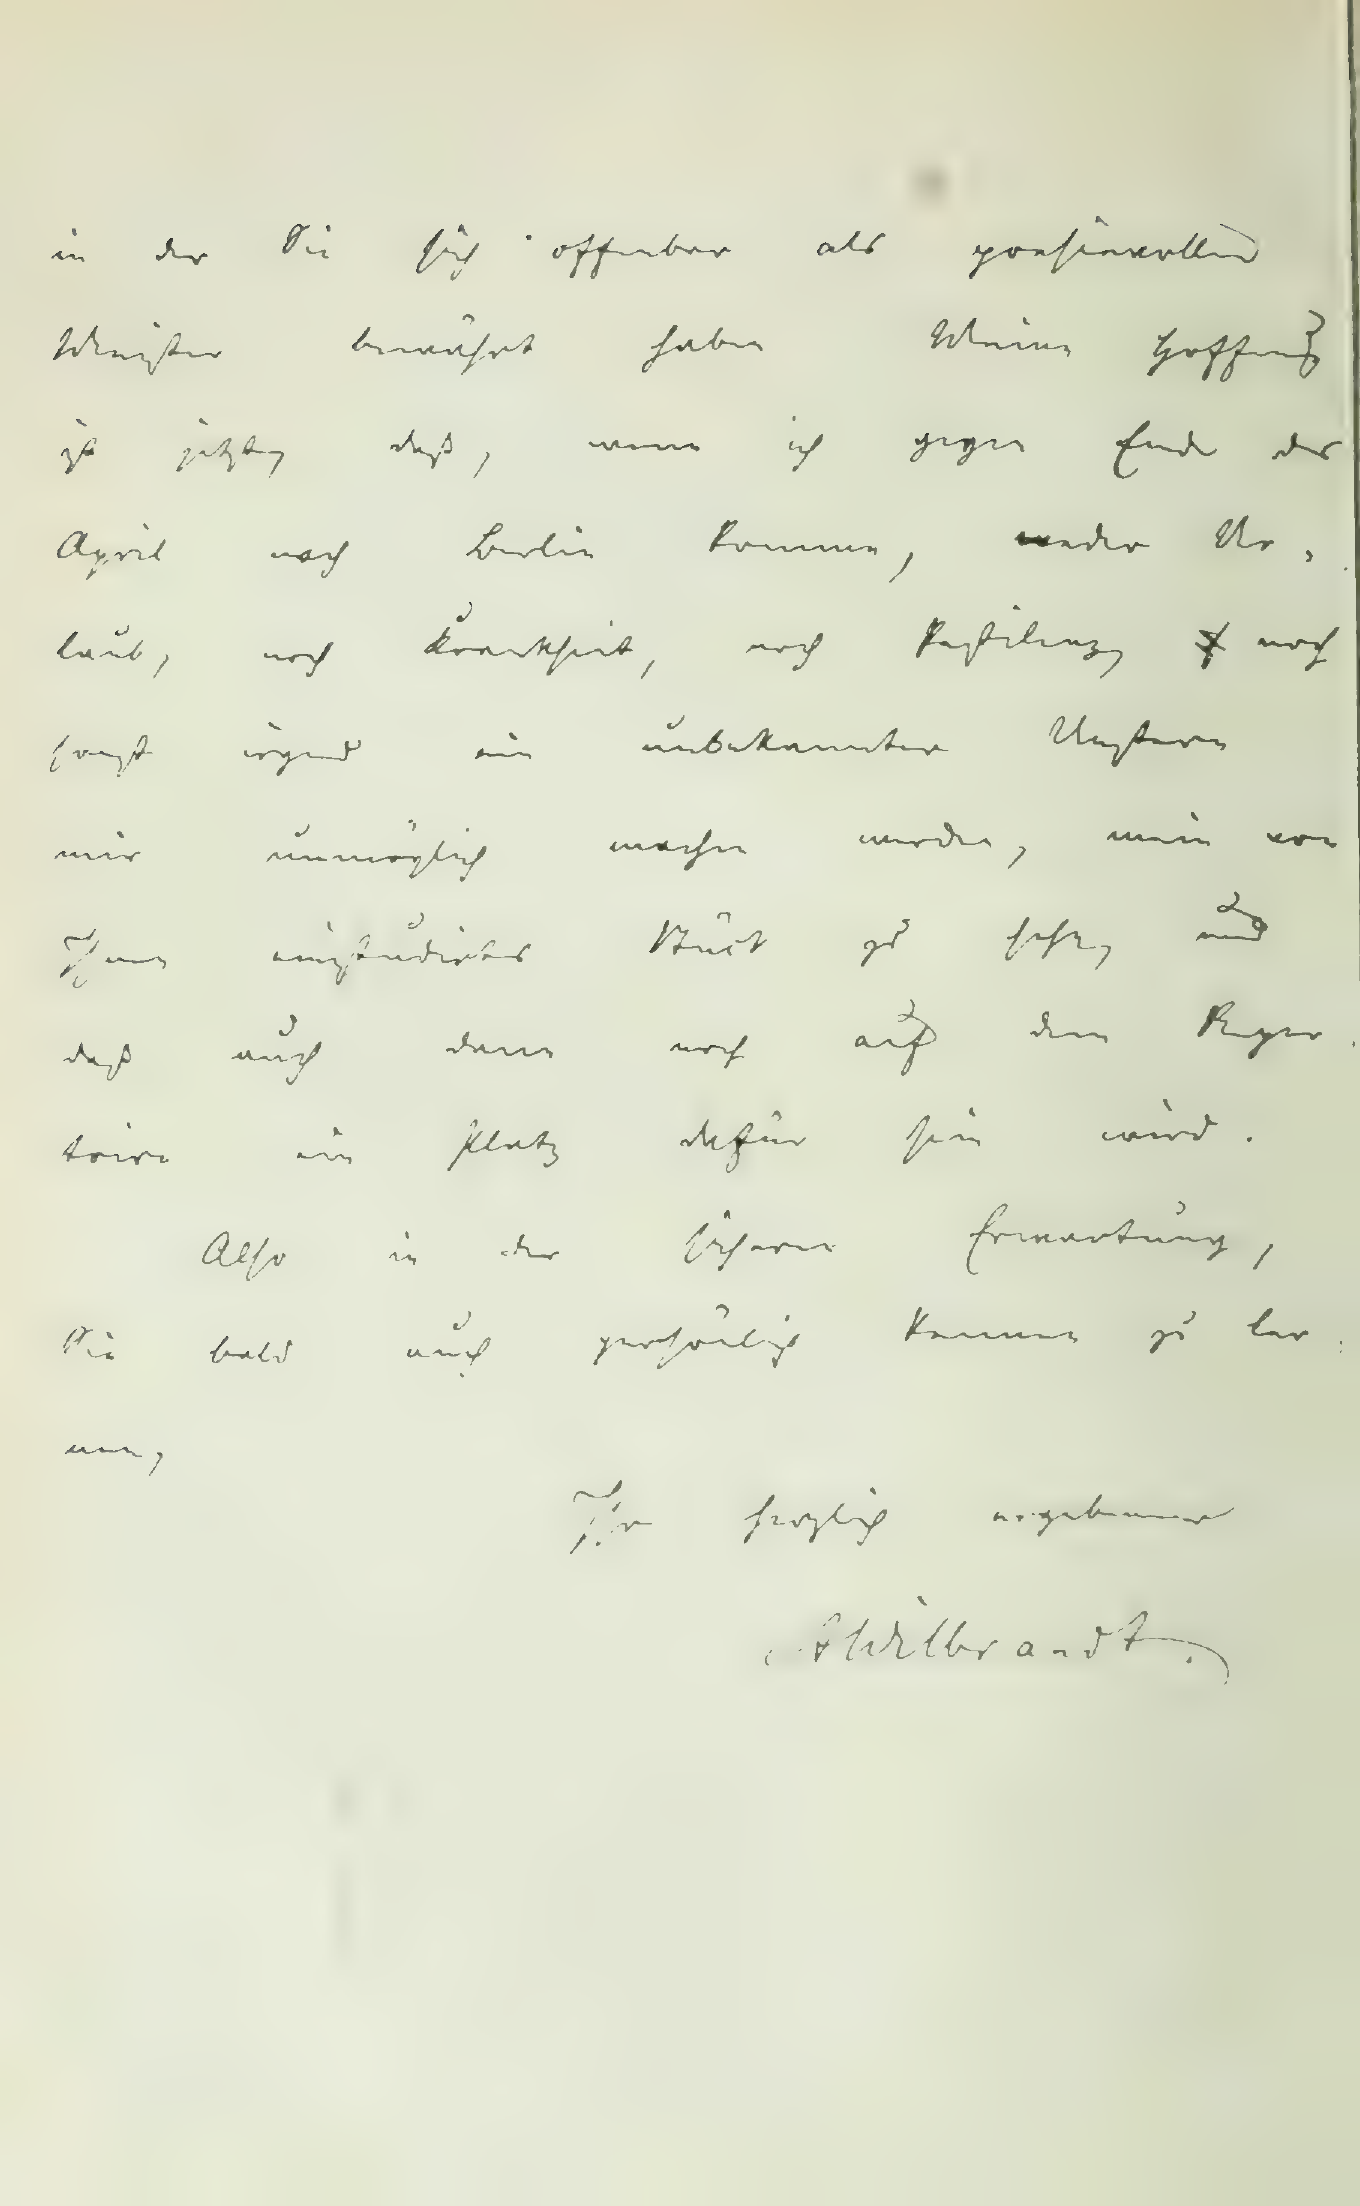 in der Sie sich offenbar als poesievollen
Meister bewährt haben Meine Hoffnung
ist jetzt, daß, wenn ich gegen Ende des
April nach Berlin komme, weder Ur-
laub, noch Krankheit, noch Pestilenz, noch
sonst irgend ein unbekannter Unstern
mir unmöglich machen werden, mein von
Ihnen einstudirtes Stück zu sehn, und
daß auch dann noch auf dem Reper-
toire ein Platz dafür sein wird.
Also in der sichern Erwartung,
Sie bald auch persönlich kennen zu ler-
nen,
Ihr herzlich ergebener
AWilbrandt.